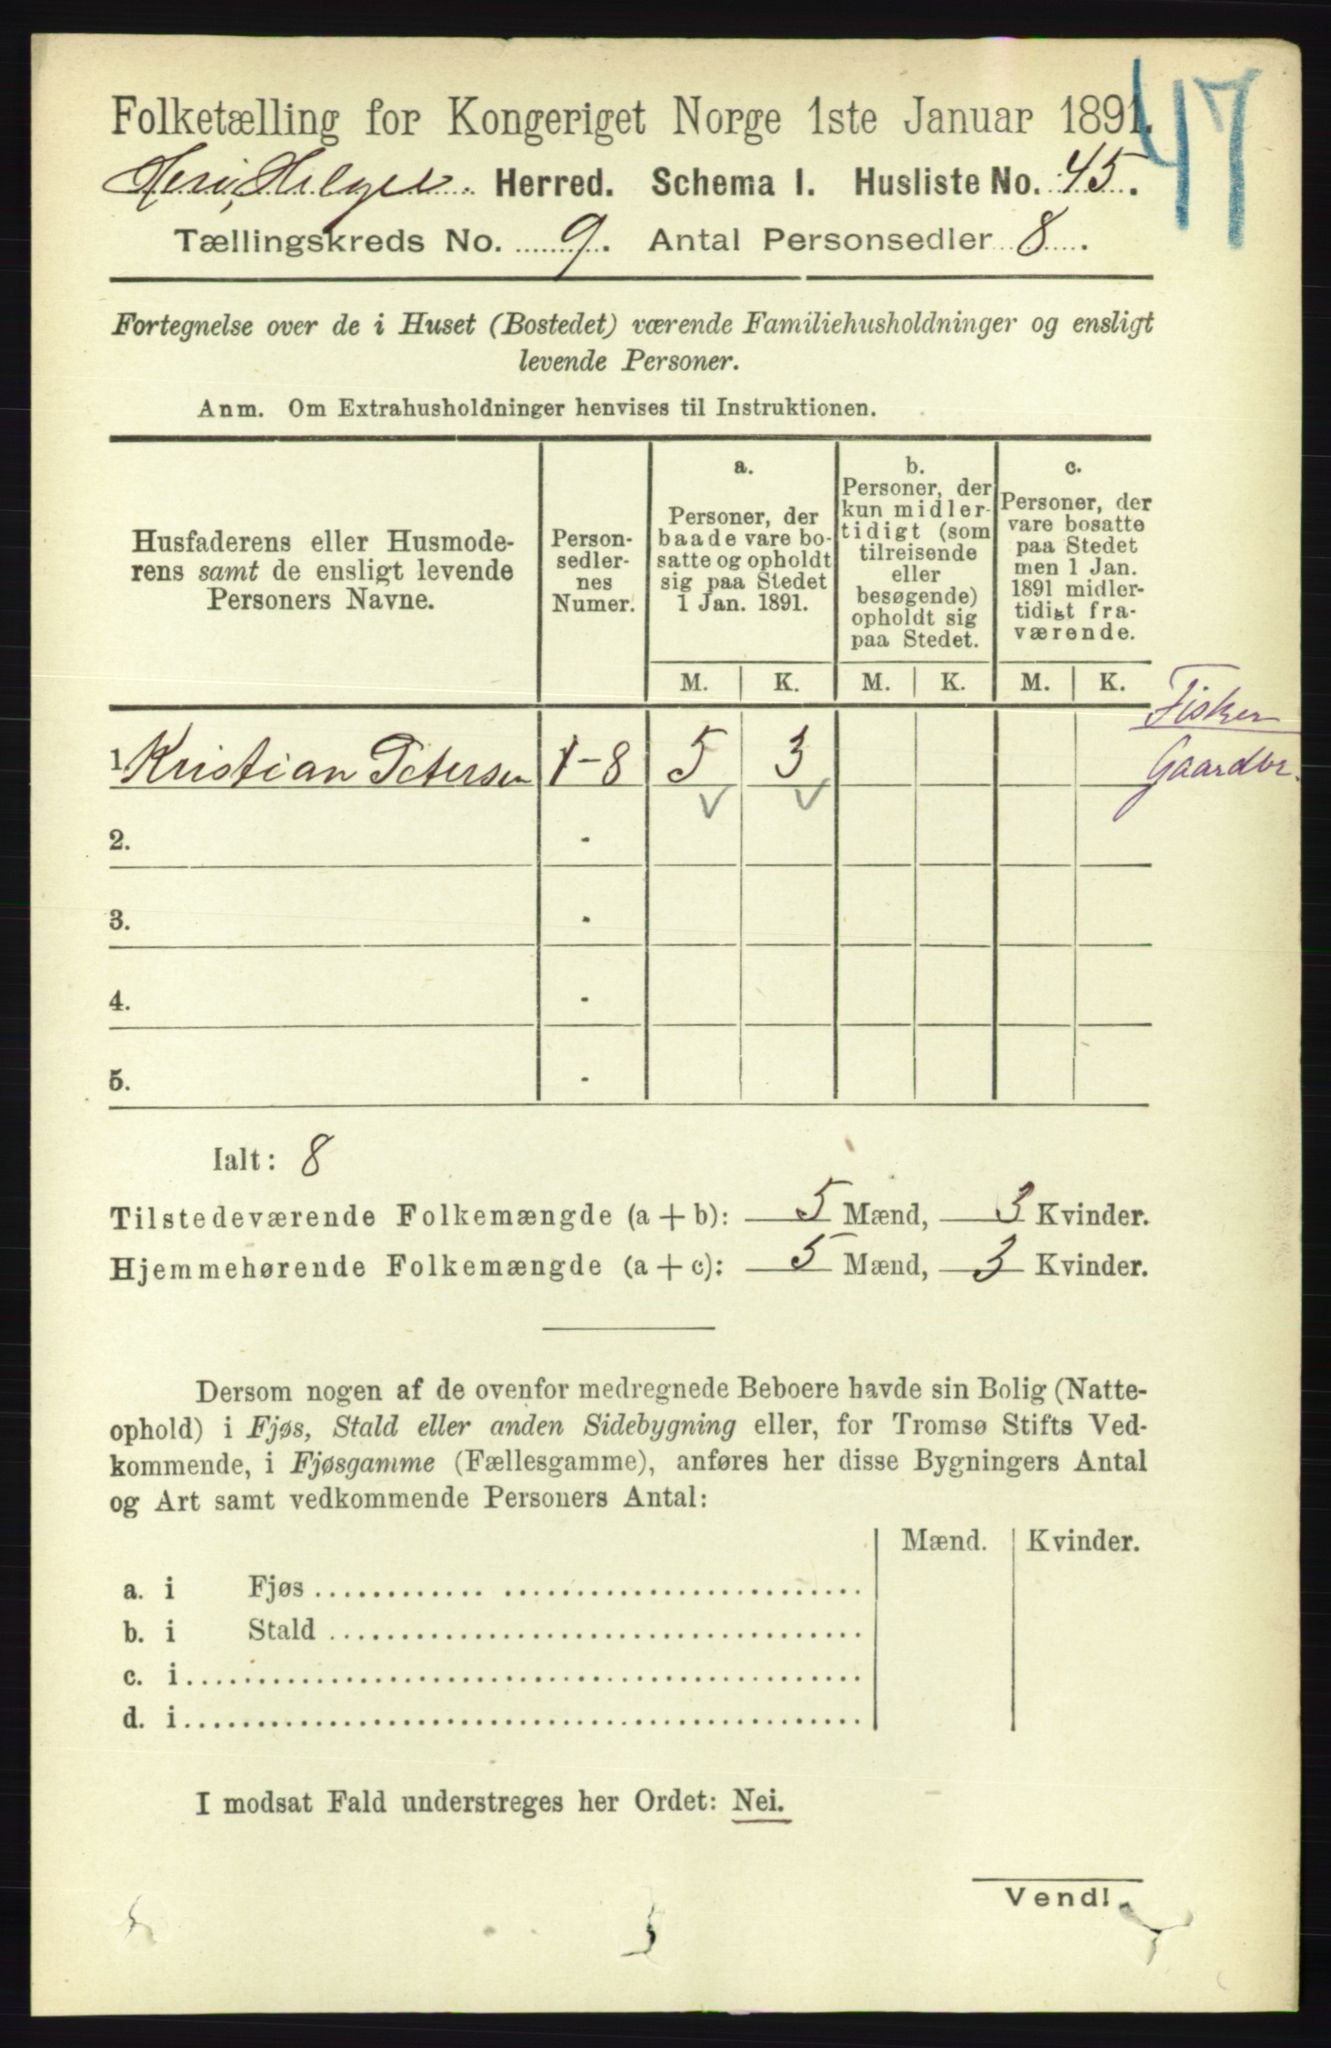 47
Folketælling for Kongeriget Norge 1ste Januar 1891.
Herø, Helgel. Herred. Schema I. Husliste No. 45.
Tællingskreds No. 9. Antal Personsedler 8.
Fortegnelse over de i Huset (Bostedet) værende Familiehusholdninger og ensligt
levende Personer.
Anm. Om Extrahusholdninger henvises til Instruktionen.
Husfaderens eller Husmode-
rens samt de ensligt levende
Personers Navne.
Person-
sedler-
nes
Numer.
a.
Personer, der
baade vare bo-
satte og opholdt
sig paa Stedet
1 Jan. 1891.
b.
Personer, der
kun midler-
tidigt (som
tilreisende
eller
besøgende)
opholdt sig
paa Stedet.
c.
Personer, der
vare bosatte
paa Stedet
men 1 Jan.
1891 midler-
tidigt fra-
værende.
M. K. M. K. M. K.
Fisker
1. Kristian Petersen 1-8 5 3 Gaardbr.
2. -
3. -
4. -
5. -
Ialt: 8
Tilstedeværende Folkemængde (a + b): 5 Mænd, 3 Kvinder.
Hjemmehørende Folkemængde (a + c): 5 Mænd, 3 Kvinder.
Dersom nogen af de ovenfor medregnede Beboere havde sin Bolig (Natte-
ophold) i Fjøs, Stald eller anden Sidebygning eller, for Tromsø Stifts Ved-
kommende, i Fjøsgamme (Fællesgamme), anføres her disse Bygningers Antal
og Art samt vedkommende Personers Antal:
Mænd. Kvinder.
a. i Fjøs
b. i Stald
c. i
d. i
I modsat Fald understreges her Ordet: Nei.
Vend!